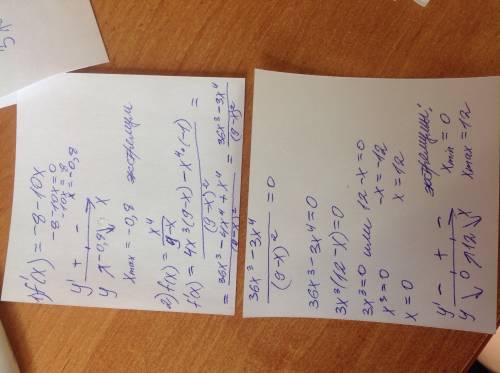 1) f'(x) = -8 - 10x
-8-10x=0
-10x=8
x=-0,8
y' + -
y -0,8 x
xmax = -0,8 экстремум
2) f(x) = x⁴/(9-x)
f'(x) = (4x³(9-x) - x⁴·(-1))/(9-x)² =
= (36x³-4x⁴+x⁴)/(9-x)² = (36x³-3x⁴)/(9-x)²
(36x³-3x⁴)/(9-x)² = 0
36x³-3x⁴=0
3x³(12-x)=0
3x³=0 или 12-x=0
x³=0 -x=-12
x=0 x=12
y' - + -
y 0 12 x
экстремумы:
xmin = 0
xmax = 12